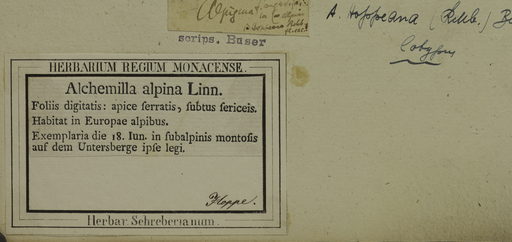 Alpigena
scrips. Buser
A. Hoppeana (Rchb.)
Cotypus
HERBARIUM REGIUM MONACENSE.
Alchemilla alpina Linn.
Foliis digitatis: apice serratis, subtus sericeis.
Habitat in Europae alpibus.
Exemplaria die 18. Iun. in subalpinis montosis
auf dem Untersberge ipse legi.
Hoppe.
Herbar. Schreberianum.